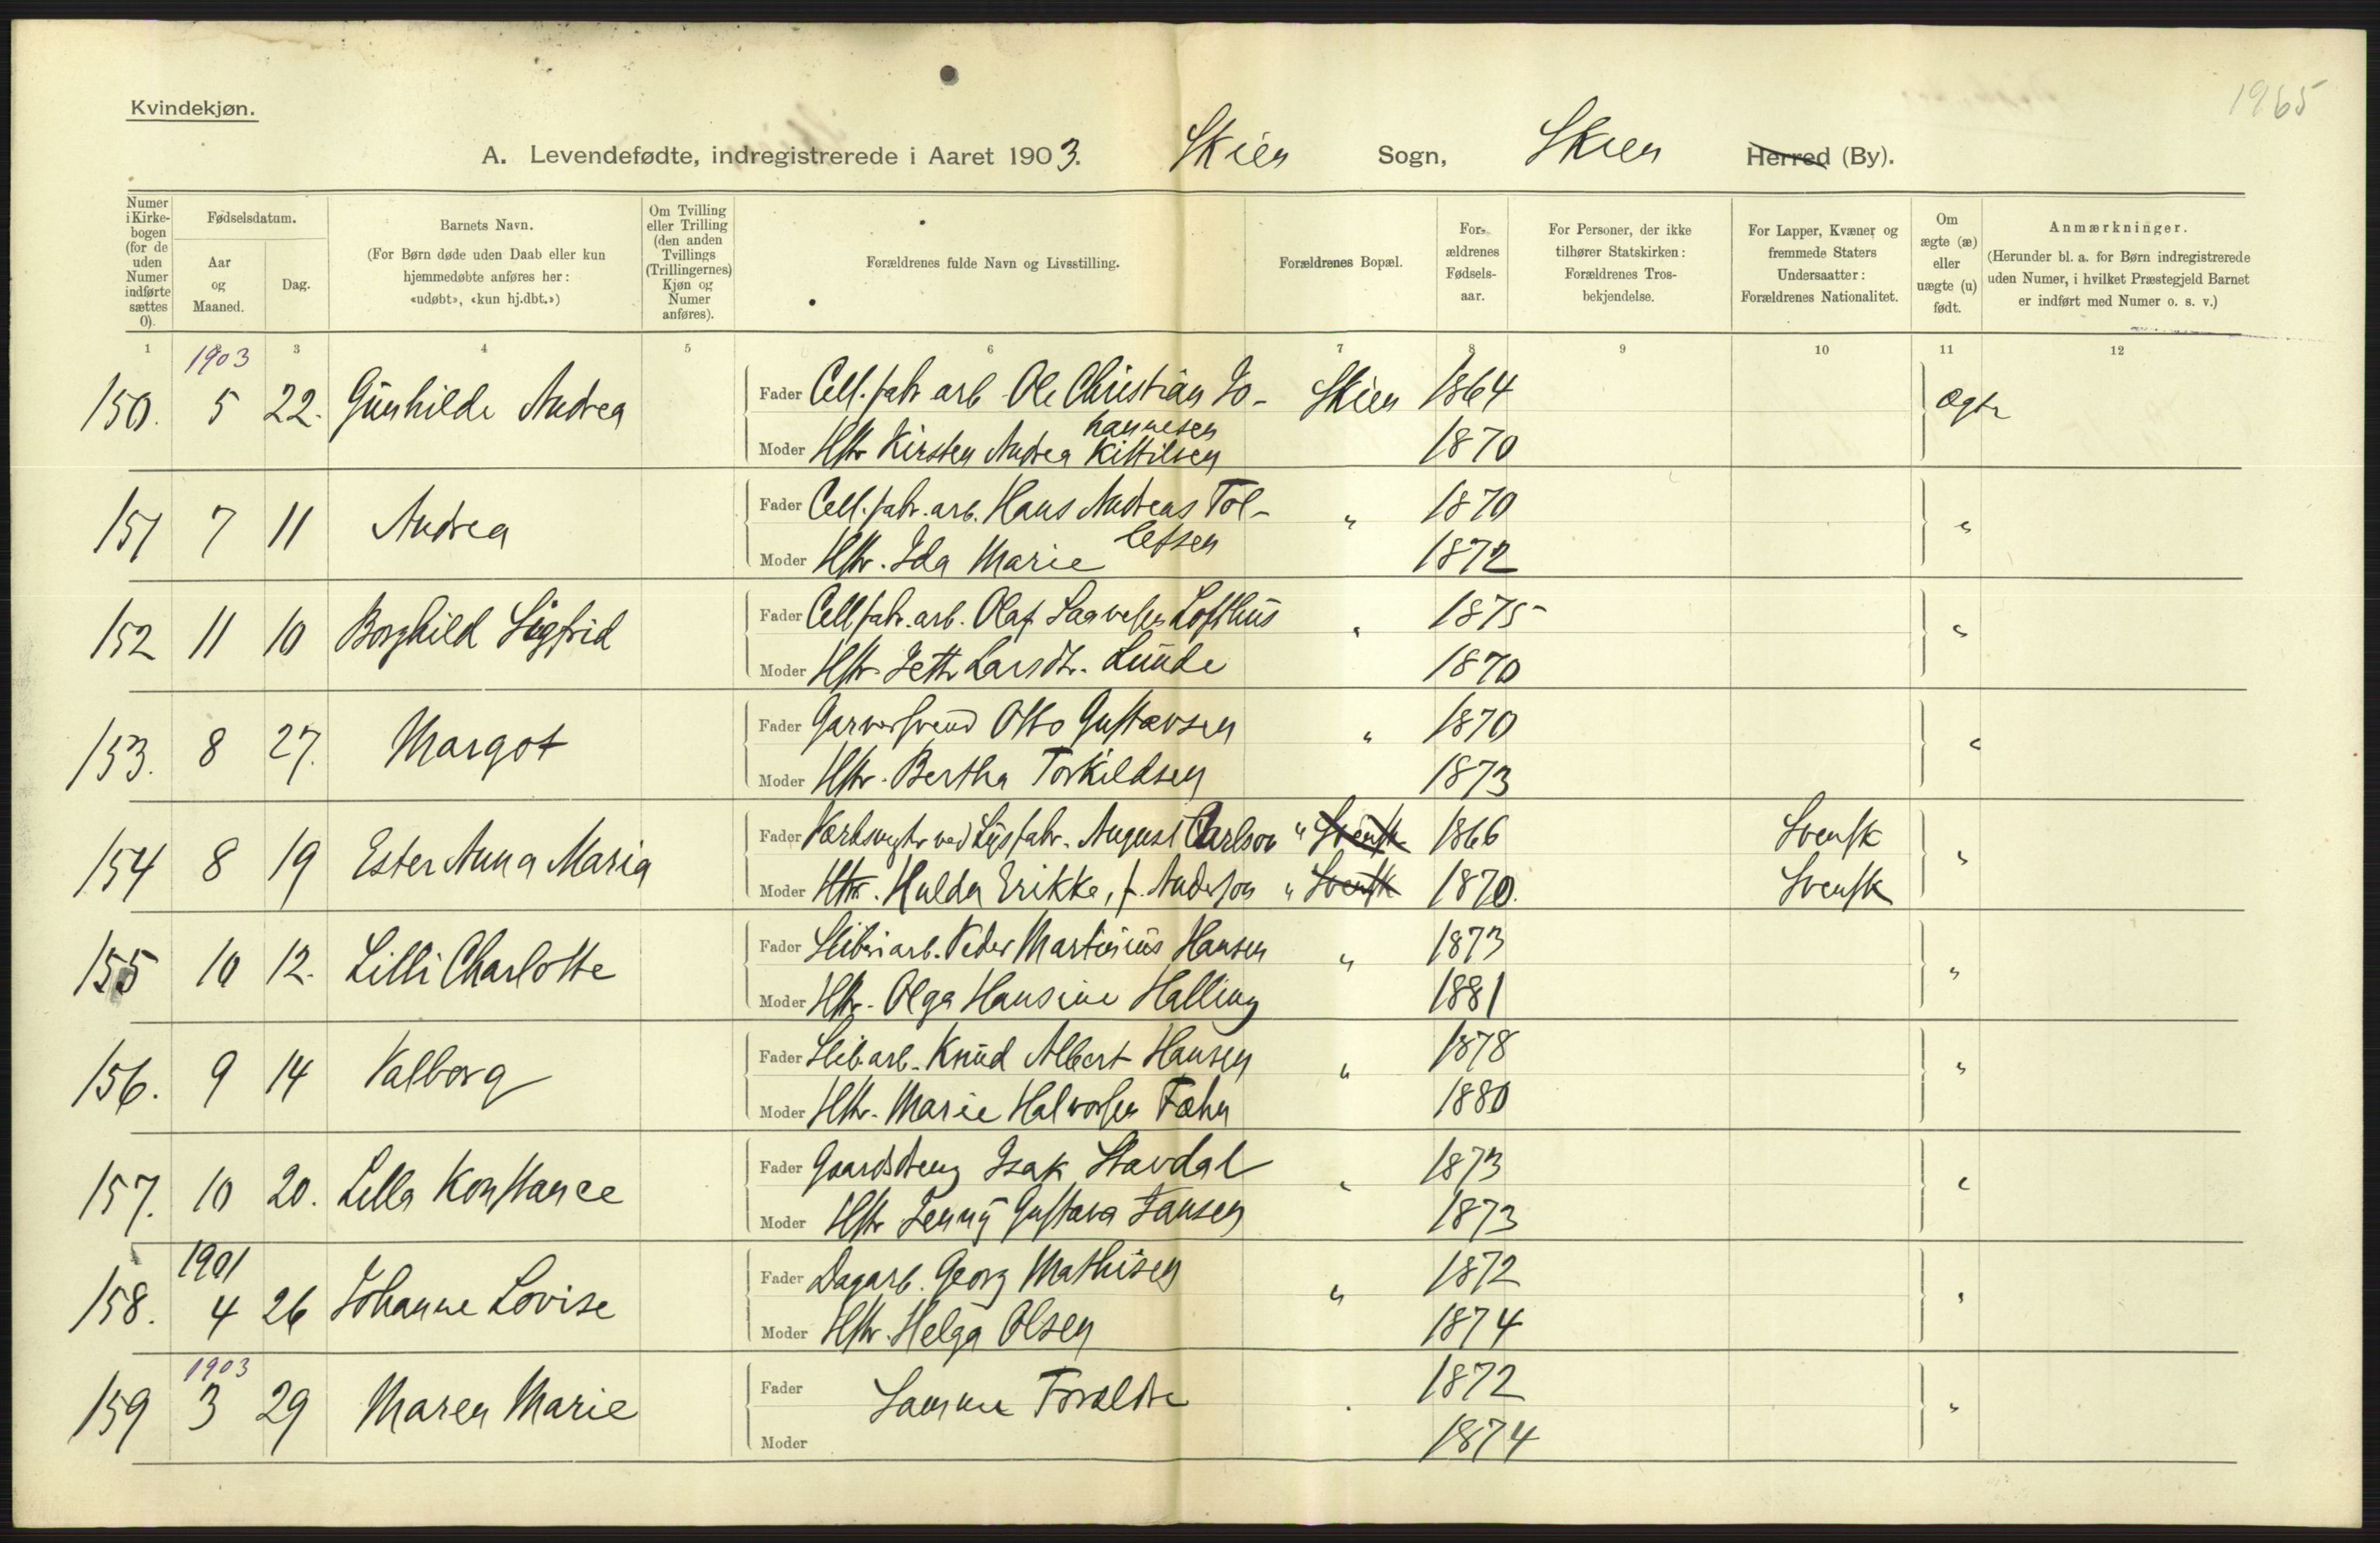 1965
Kvindekjøn.
A. Levendefødte, indregistrerede i Aaret 1903. Skien Sogn, Skien Herred (By).
Numer i Kirke-bogen (for de uden Numer indførte sættes 0).
Fødselsdatum.
Aar og Maaned.
Dag.
Barnets Navn.
(For Børn døde uden Daab eller kun hjemmedøbte anføres her: «udøbt», «kun hj.dbt.»)
Om Tvilling eller Trilling (den anden Tvillings (Trillingernes) Kjøn og Numer anføres).
Forældrenes fulde Navn og Livsstilling.
Forældrenes Bopæl.
For-ældrenes Fødsels-aar.
For Personer, der ikke tilhører Statskirken: Forældrenes Tros-bekjendelse.
For Lapper, Kvæner og fremmede Staters Undersaatter: Forældrenes Nationalitet.
Om ægte (æ) eller uægte (u) født.
Anmærkninger.
(Herunder bl. a. for Børn indregistrerede uden Numer, i hvilket Præstegjeld Barnet er indført med Numer o. s. v.)
1 3 4 5 6 7 8 9 10 11 12
1903
150. 5 22. Gunhilde Andrea Fader Cell. fabr arb Ole Christian Jo- Skien 1864 Ægte
hannesen
Moder Hstr Kirsten Andrea Kittilsen 1870
151 7 11 Andrea Fader Cell. fabr. arb. Hans Andreas Tol- " 1870 "
lefsen
Moder Hstr. Ida Marie 1872
152 11 10 Borghild Sigfrid Fader Cell fabr. arb. Olaf Saavesen Lofthus " 1875 "
Moder Hstr. Jette Larsdtr. Lunde 1870
153. 8 27. Margot Fader Garversvend Otto Gustavsen " 1870 "
Moder Hstr. Bertha Torkildsen 1873
154 8 19 Ester Anna Maria Fader ved August Carlson " Svensk 1866 Svensk "
Moder Hstr. Hulda Erikke, f. Anderson " Svensk 1870. Svensk
155 10 12. Lilli Charlotte Fader Sliberiarb. Peder Martinius Hansen " 1873 "
Moder Hstr. Olga Hansine Halling 1881
156. 9 14 Valborg Fader Slib.arb. Knud Albert Hansen " 1878 "
Moder Hstr. Marie Halvorsen Fæhn 1880
157. 10 20. Lilla Konstance Fader Gaardsdreng Isak Stavdal " 1873 "
Moder Hstr Jenny Gustava Jansen 1873
1901
158. 4 26 Johanne Lovise Fader Dagarb. Georg Mathisen " 1872 "
Moder Hstr. Helga Olsen 1874
1903
159 3 29 Maren Marie Fader Samme Forældre " 1872 "
Moder 1874